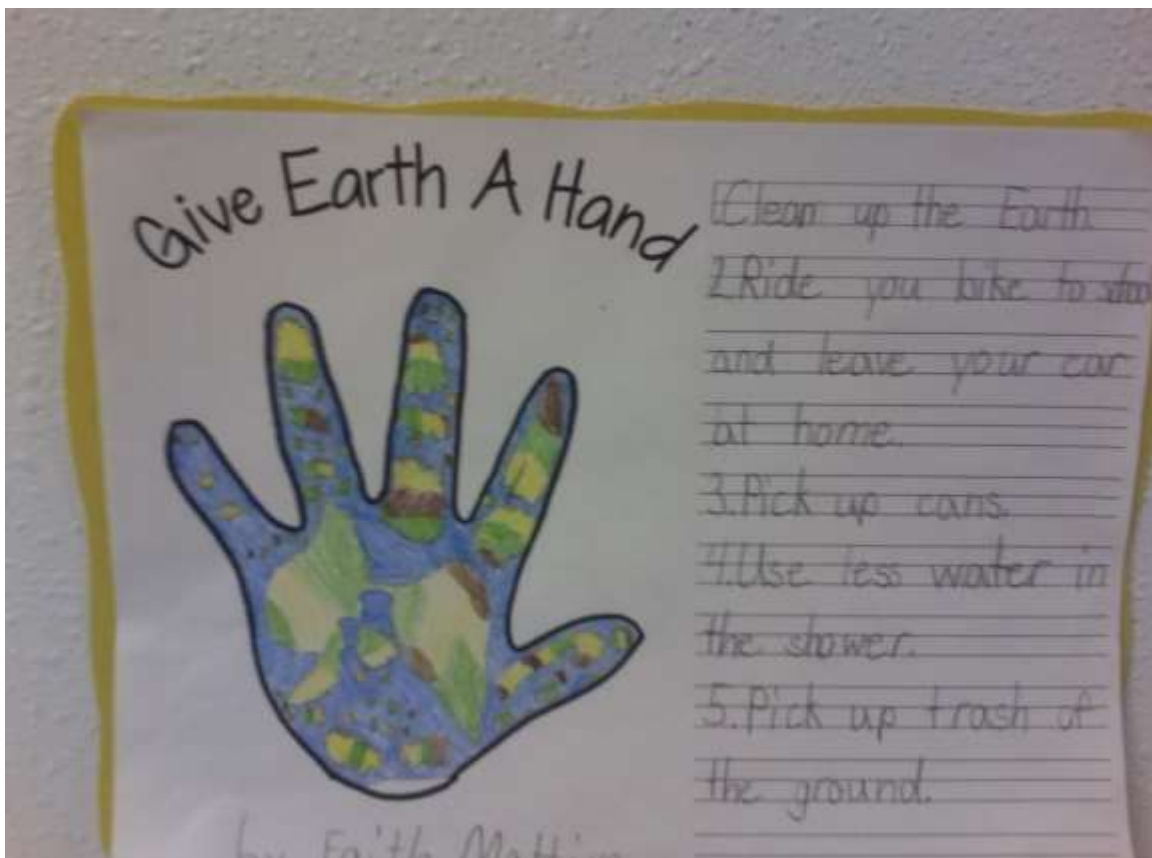 Give Earth A Hand
1.Clean up the Earth
2.Ride you bike to school
and leave your car
at home.
3.Pick up cans.
4.Use less water in
the shower.
5.Pick up trash of
the ground.
by Faith